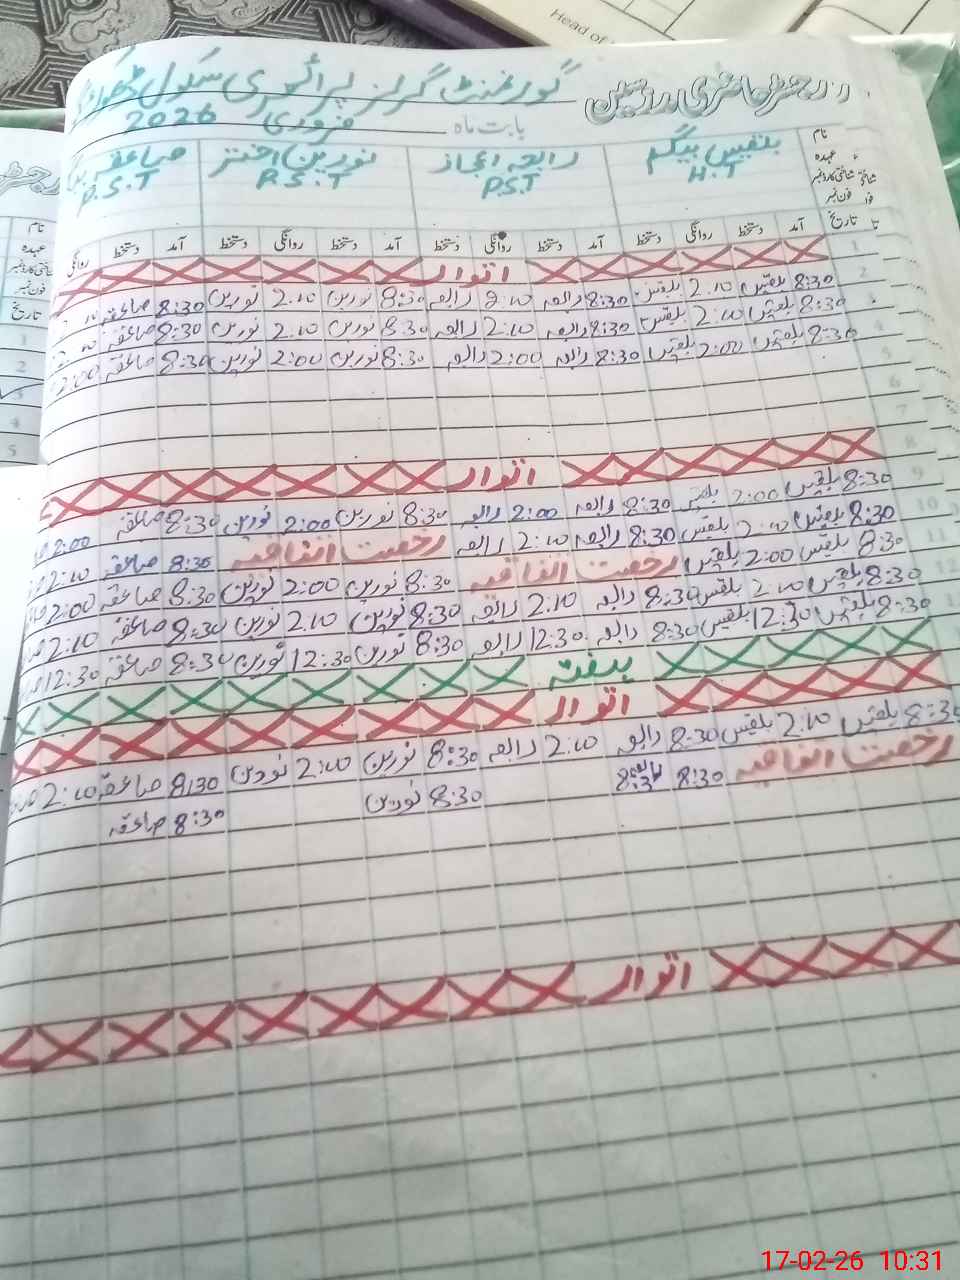 Head of
رجسٹر حاضری مدرسین گورنمنٹ گرلز پرائمری سکول
بابت ماہ فروری 2026
نام بلقیس بیگم رابعہ اعجاز نورین اختر صاعقہ
عہدہ H.T P.S.T P.S.T P.S.T
شناختی کارڈ نمبر
فون نمبر
تاریخ آمد دستخط روانگی دستخط آمد دستخط روانگی دستخط آمد دستخط روانگی دستخط آمد دستخط روانگی
1 اتوار
2 8:30 بلقیس 2:10 بلقیس 8:30 رابعہ 2:10 رابعہ 8:30 نورین 2:10 نورین 8:30 صاعقہ
8:30 بلقیس 2:10 بلقیس 8:30 رابعہ 2:10 رابعہ 8:30 نورین 2:10 نورین 8:30 صاعقہ
4 8:30 بلقیس 2:00 بلقیس 8:30 رابعہ 2:00 رابعہ 8:30 نورین 2:00 نورین 8:30 صاعقہ 2:00
5
6
7
8 اتوار
9 8:30 بلقیس 2:00 بلقیس 8:30 رابعہ 2:00 رابعہ 8:30 نورین 2:00 نورین 8:30 صاعقہ 2:00
10 8:30 بلقیس 2:10 بلقیس 8:30 رابعہ 2:10 رابعہ رخصت اتفاقیہ 8:30 صاعقہ 2:10
11 8:30 بلقیس 2:00 بلقیس رخصت اتفاقیہ 8:30 نورین 2:00 نورین 8:30 صاعقہ 2:00
12 8:30 بلقیس 2:10 بلقیس 8:30 رابعہ 2:10 رابعہ 8:30 نورین 2:10 نورین 8:30 صاعقہ 2:10
8:30 بلقیس 12:30 بلقیس 8:30 رابعہ 12:30 رابعہ 8:30 نورین 12:30 نورین 8:30 صاعقہ 12:30
ہفتہ
اتوار
8:30 بلقیس 2:10 بلقیس 8:30 رابعہ 2:10 رابعہ 8:30 نورین 2:10 نورین 8:30 صاعقہ 2:10
رخصت اتفاقیہ 8:30 رابعہ 8:30 نورین 8:30 صاعقہ
اتوار
نام
عہدہ
شناختی کارڈ نمبر
فون نمبر
تاریخ
1
2
3
4
5
17-02-26 10:31